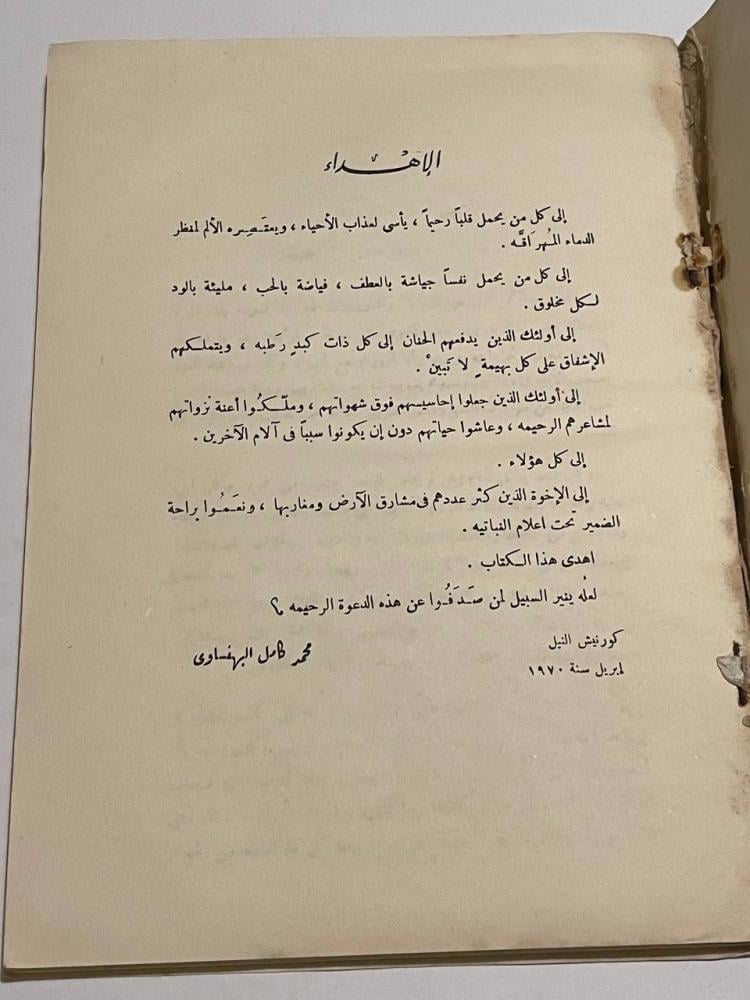 الإهداء
إلى كل من يحمل قلباً رحيماً ، يأسى لعذاب الأحياء ، ويعتَصِره الألم لمنظر
الدماء المُهرَاقَه .
إلى كل من يحمل نفساً جياشة بالعطف ، فياضة بالحب ، مليئة بالود
لكل مخلوق .
إلى أولئك الذين يدفعهم الحنان إلى كل ذات كبدٍ رَطبه ، ويتملكهم
الإشفاق على كل بهيمةٍ لا تَبينْ .
إلى أولئك الذين جعلوا إحاسيسهم فوق شهواتهم ، وملّكُوا أعنة نزواتهم
لمشاعرهم الرحيمه ، وعاشوا حياتهم دون إن يكونوا سبباً فى آلام الآخرين .
إلى كل هؤلاء .
إلى الإخوة الذين كثر عددهم فى مشارق الآرض ومغاربها ، ونعَمُوا براحة
الضمير تحت اعلام النباتيه .
اهدى هذا الكتاب .
لعله ينير السبيل لمن صَدَفُوا عن هذه الدعوة الرحيمه ؟
كورنيش النيل
إبريل سنة ١٩٧٠
محمد كامل البهنساوى